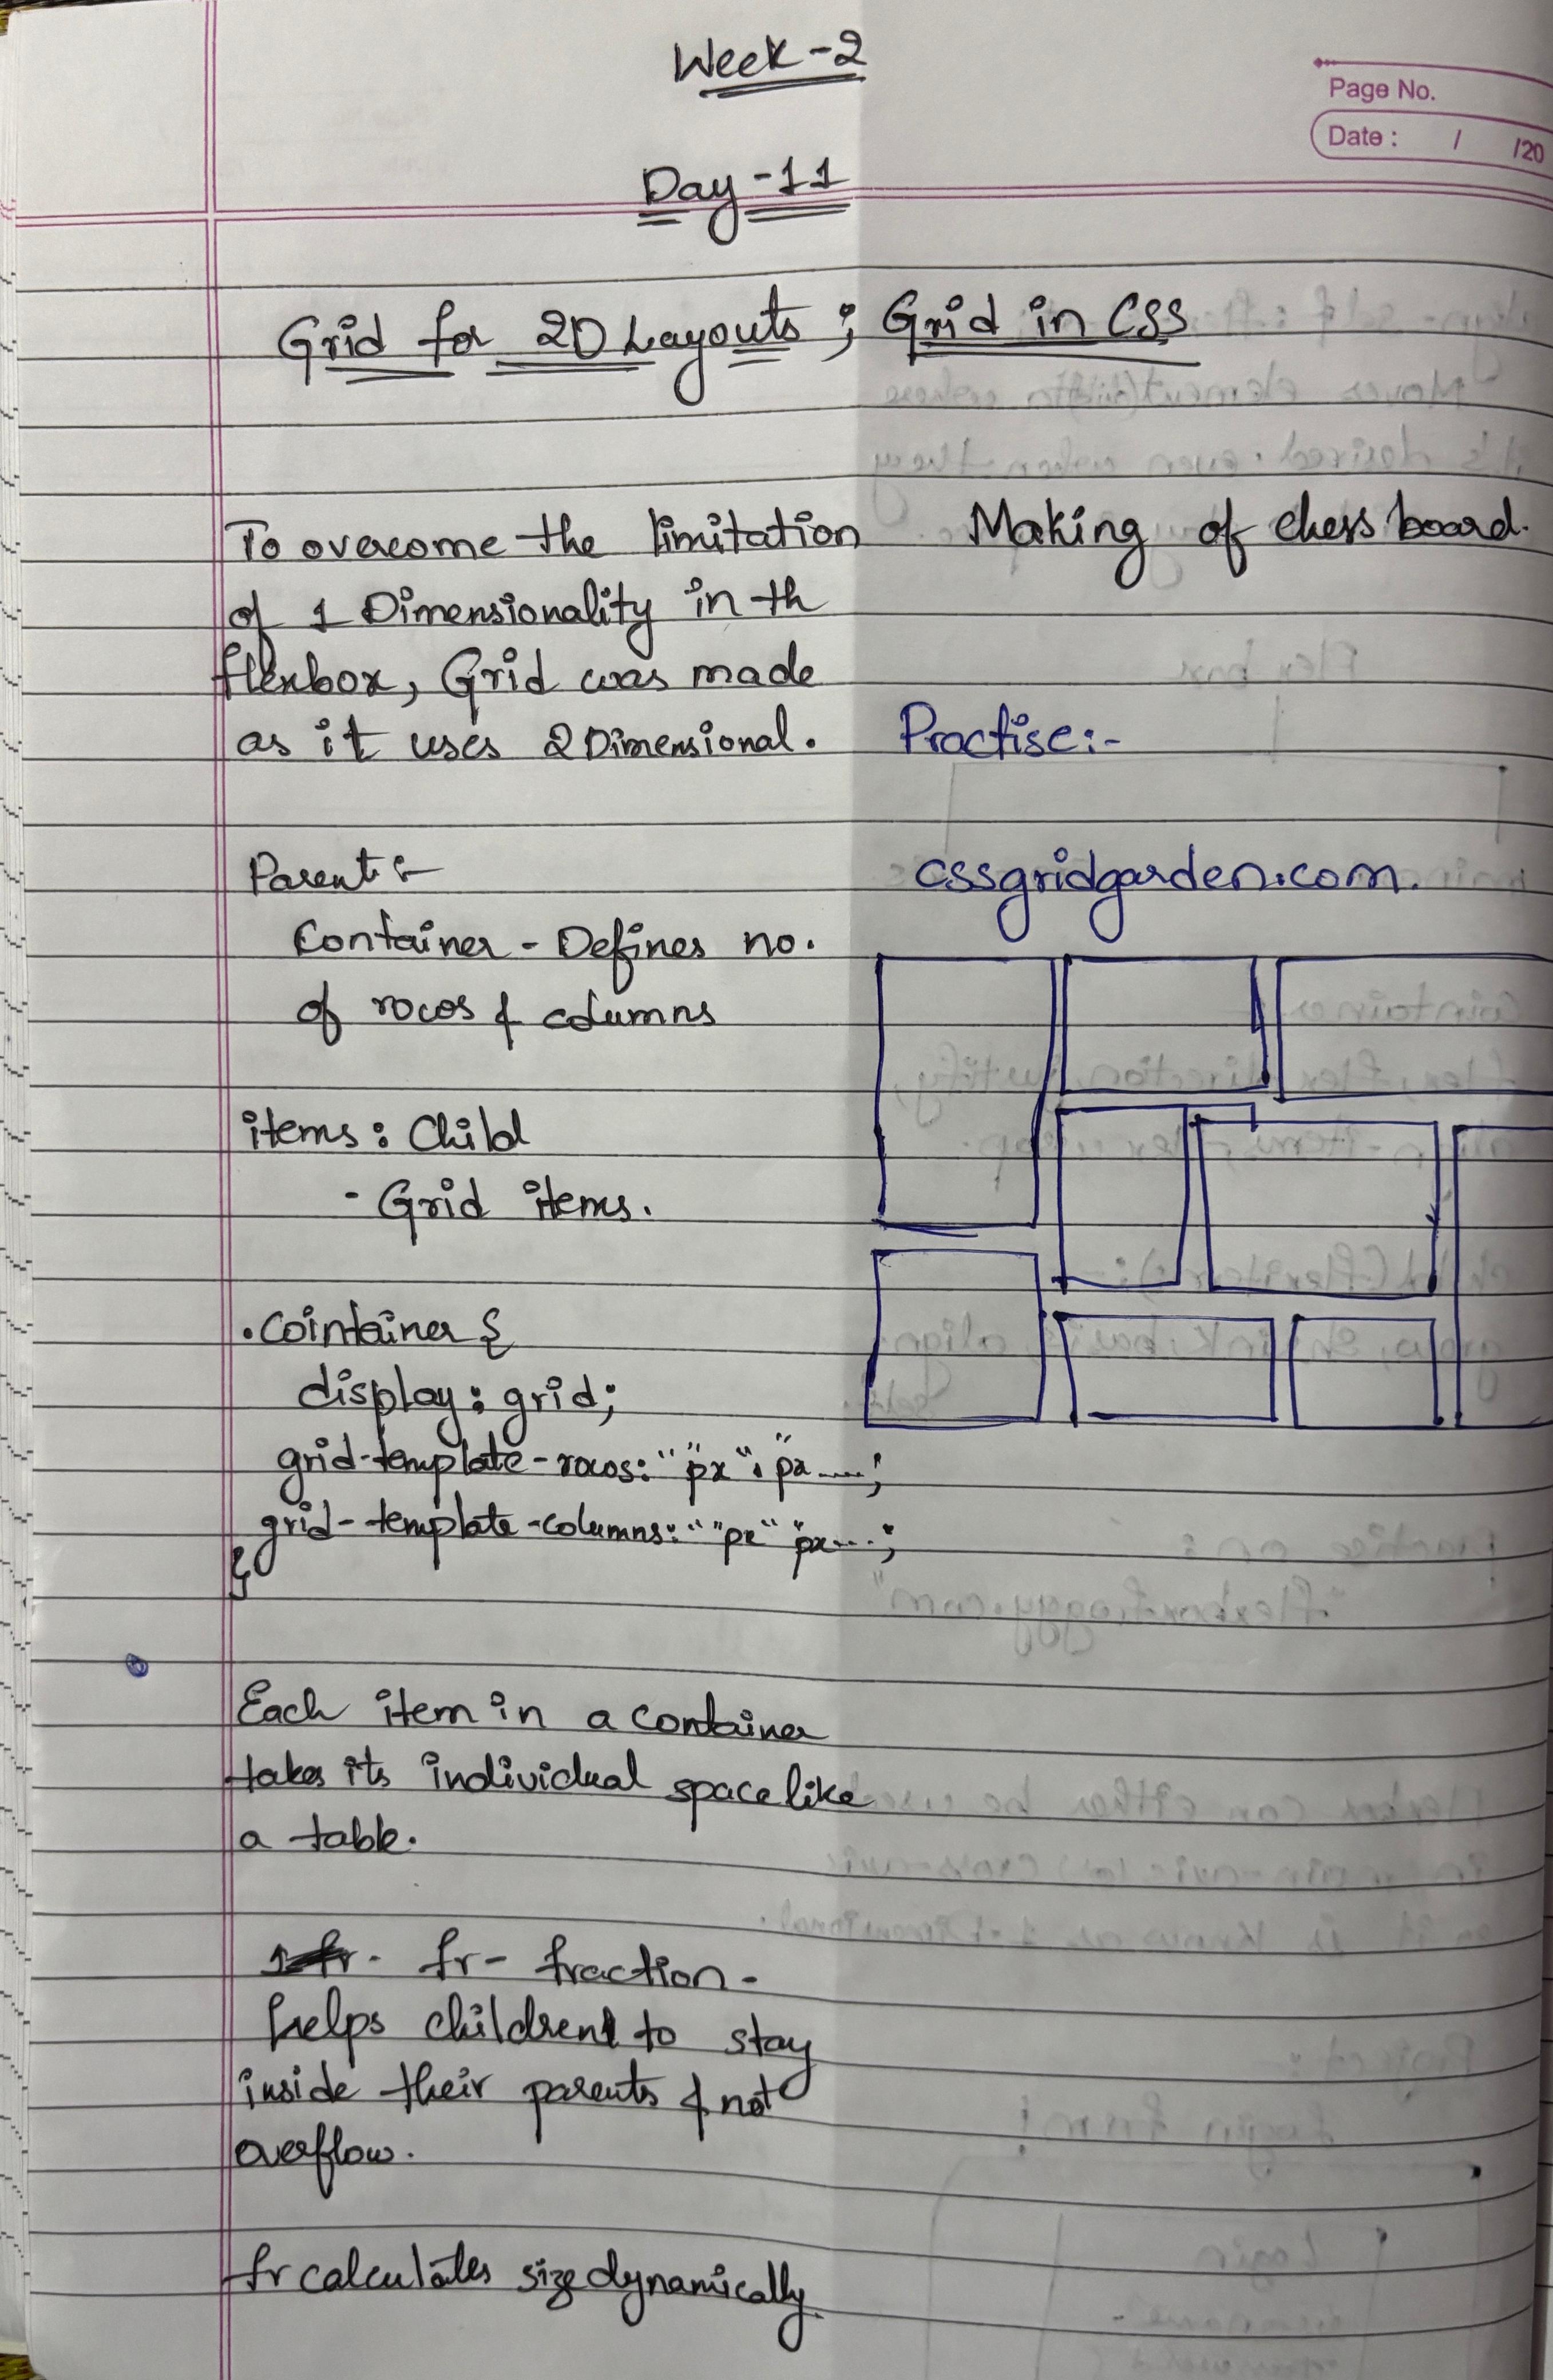 Week-2
Page No.
Date: / /20
Day-11
Grid for 2D Layouts ; Grid in CSS
To overcome the limitation
of 1 Dimensionality in th
flexbox, Grid was made
as it uses 2 Dimensional.
Parent :-
Container - Defines no.
of rows & columns
items : Child
- Grid items.
.Cointainer {
display: grid;
grid-template-rows: " "px " " px ....;
grid-template-columns: " "px " " px...;
}
Each item in a container
takes its individual space like
a table.
1fr- fr- fraction-
helps children to stay
inside their parents & not
overflow.
fr calculates size dynamically.
Making of chess board.
Practise:-
cssgridgarden.com.